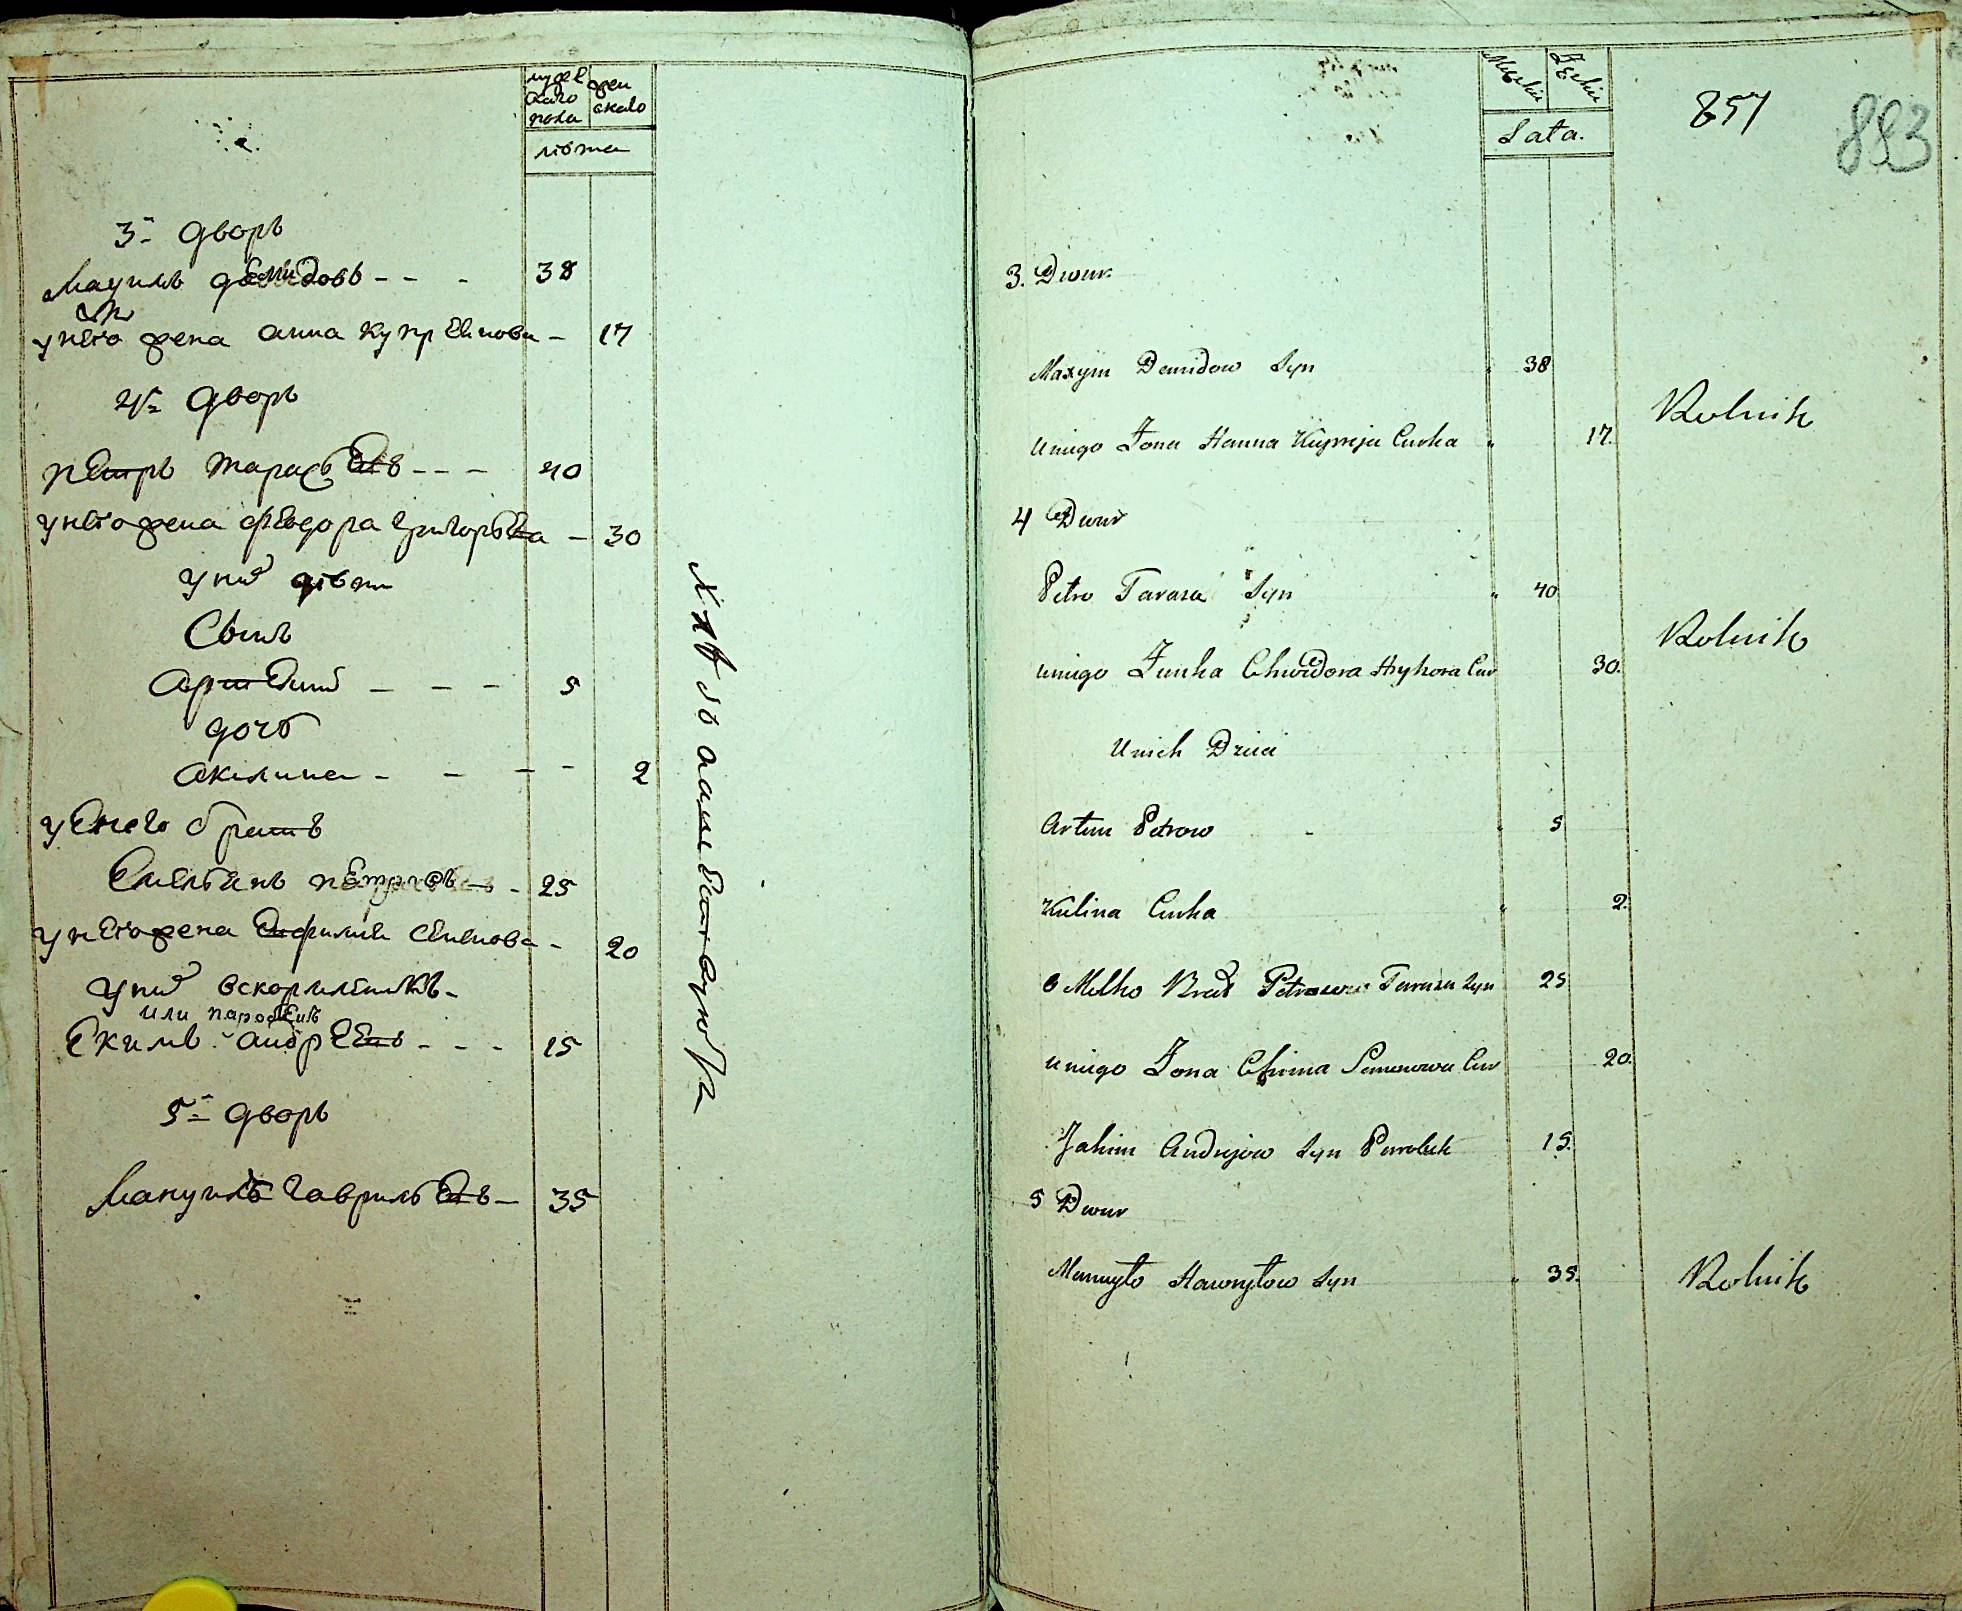 мужескаго пола
женскаго
лѣта
3й дворъ
Мацимъ демидовъ - - - 38
унего жена анна купреянова - 17
4й дворъ
петръ тарасовъ - - - 40
унего жена феодора григорьева - 30
унихъ дѣти
Сынъ
артемий - - - 5
дочь
акилина - - - - 2
у него братъ
Емельянъ петровъ - 25
унего жена евфимия семенова - 20
унихъ вскормленикъ -
или паробокъ
Екимъ андреевъ - - - 15
5й дворъ
Мануилъ гавриловъ - 35
Męzkie
Żęskie
Lata.
857
883
3. Dwur.
Maxym Demidow Syn 38
Uniego Żona Hanna Kupreja Curka 17.
Rolnik
4 Dwur
Petro Tarasa Syn 40
Rolnik
uniego Żunka Chwedora Hryhora Cur 30.
Unich Dzieci
Artem Petrow 5
Kulina Curka 2.
OMelko Brat Petrowi Tarasa Syn 25
uniego Żona Chfima Semenowa Cur 20.
Jakim Andrejow Syn Parobek 15.
5 Dwur
Manuyło Hawryłow Syn 35.
Rolnik